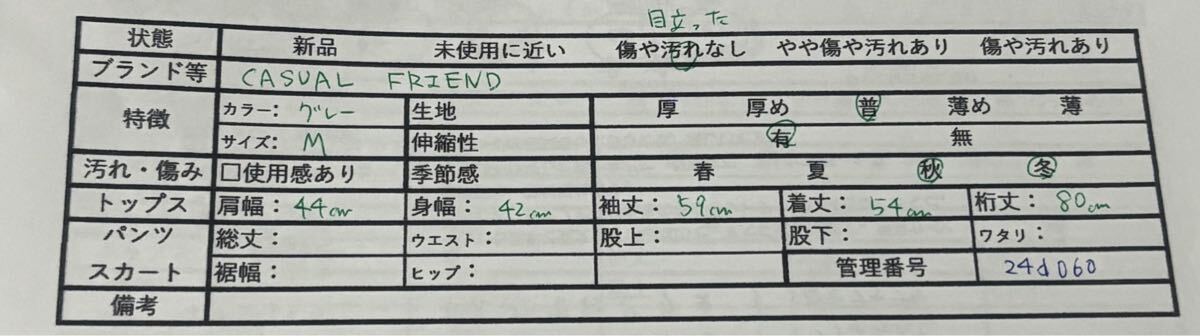 目立った
状態 新品 未使用に近い 傷や汚れなし やや傷や汚れあり 傷や汚れあり
ブランド等 CASUAL FRIEND
特徴 カラー：グレー 生地 厚 厚め 普 薄め 薄
サイズ：M 伸縮性 有 無
汚れ・傷み □使用感あり 季節感 春 夏 秋 冬
トップス 肩幅：44cm 身幅：42cm 袖丈：59cm 着丈：54cm 裄丈：80cm
パンツ 総丈： ウエスト： 股上： 股下： ワタリ：
スカート 裾幅： ヒップ： 管理番号 24d060
備考